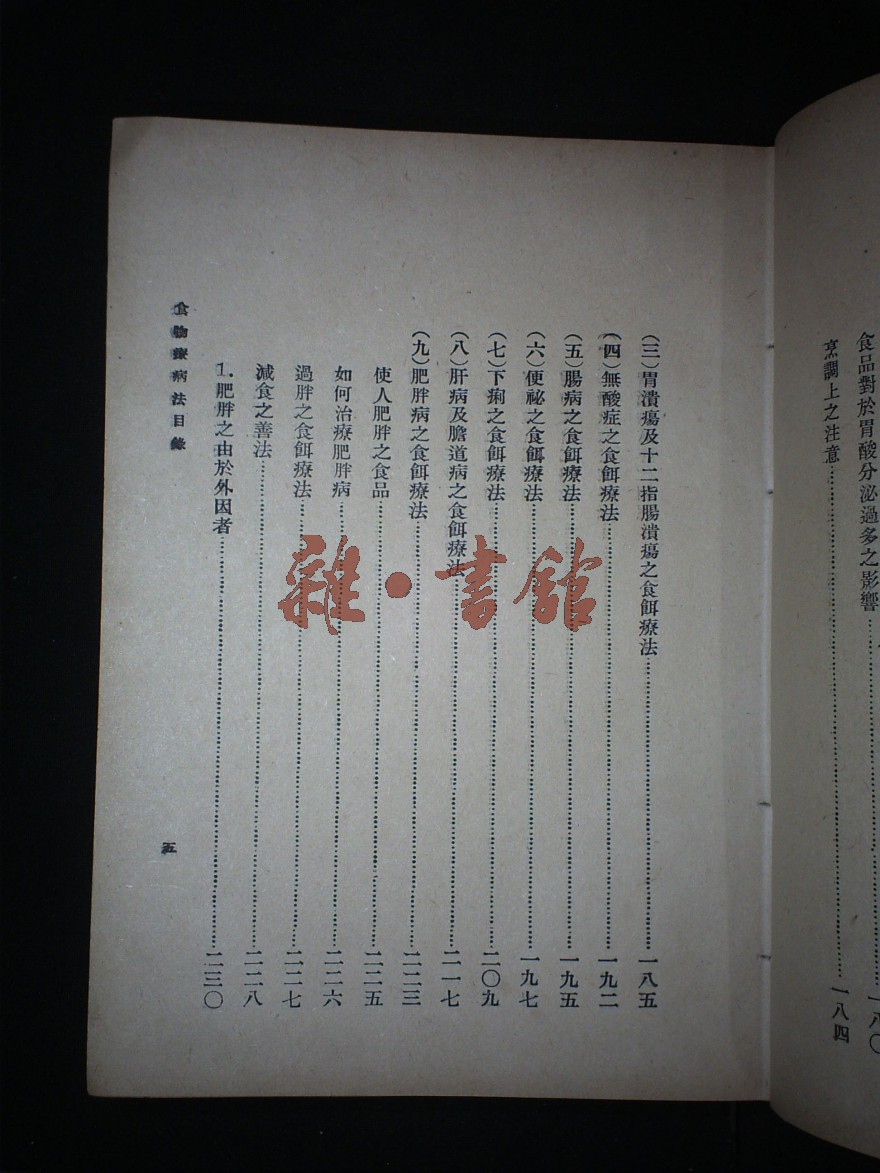 食品對於胃酸分泌過多之影響……一八〇
烹調上之注意……一八四
(三)胃潰瘍及十二指腸潰瘍之食餌療法……一八五
(四)無酸症之食餌療法……一九二
(五)腸病之食餌療法……一九五
(六)便祕之食餌療法……一九七
(七)下痢之食餌療法……二〇九
(八)肝病及膽道病之食餌療法……二一七
(九)肥胖病之食餌療法……二二三
使人肥胖之食品……二二五
如何治療肥胖病……二二六
過胖之食餌療法……二二七
減食之善法……二二八
1.肥胖之由於外因者……二三〇
食物療病法目錄
五
雜·書館